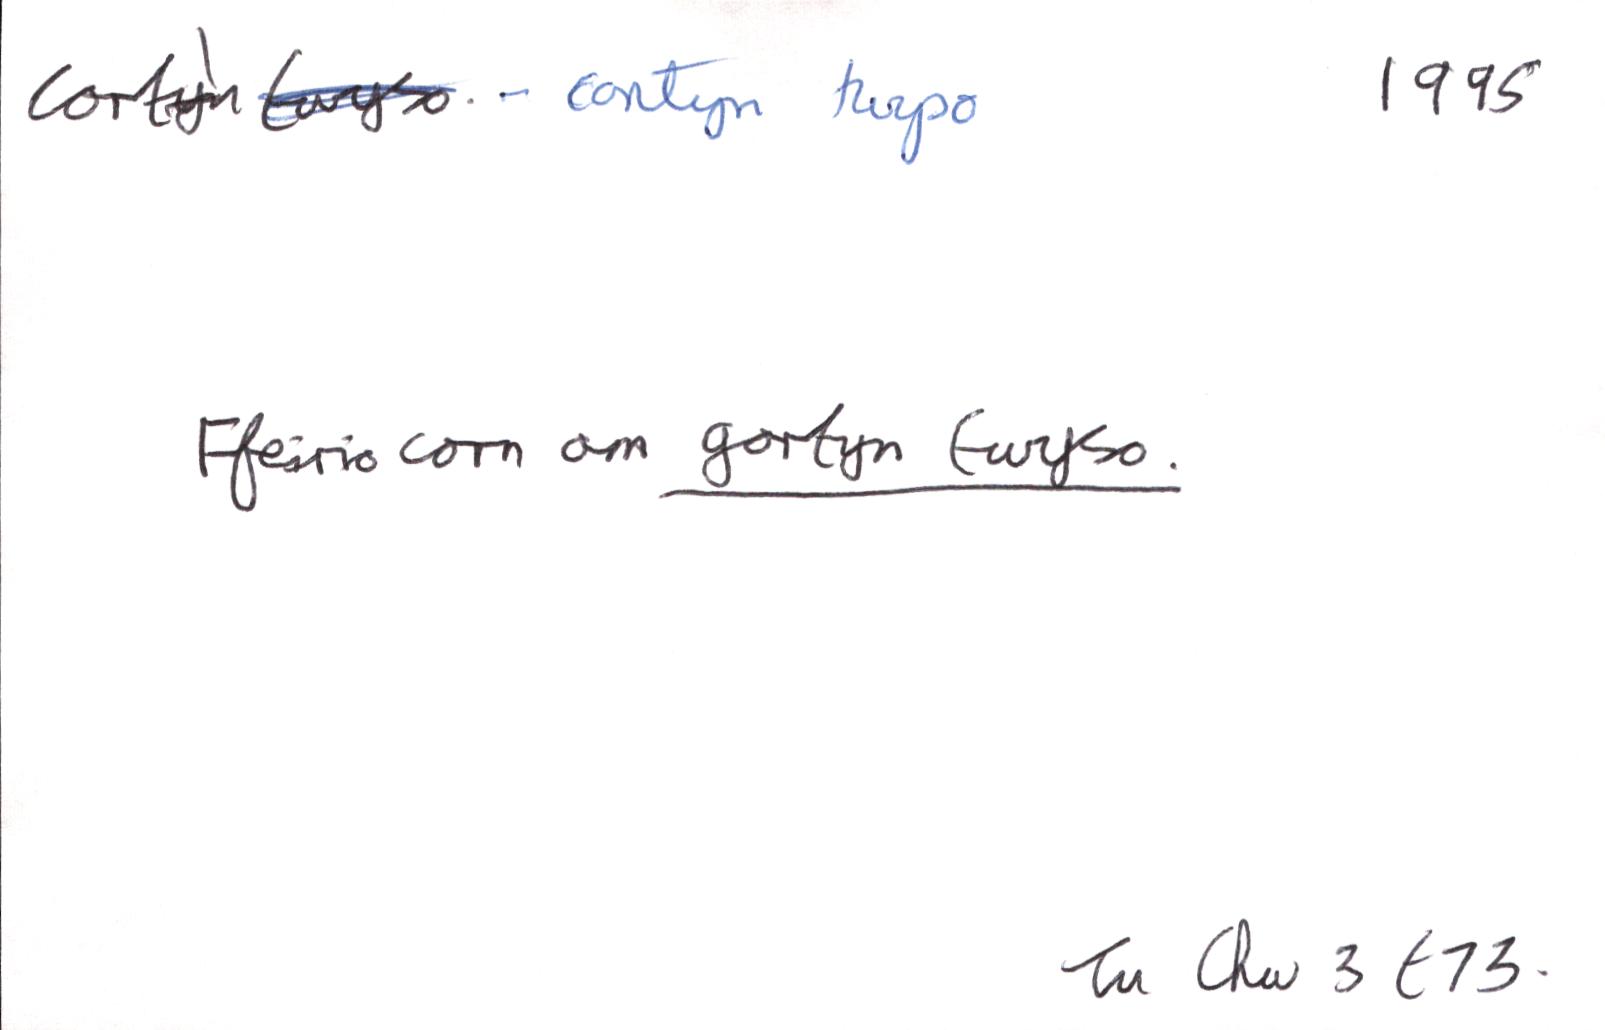 cortyn twyso. - cortyn twyso 1995
Ffeirio corn am gortyn twyso.
Tu Chw 3 t73.